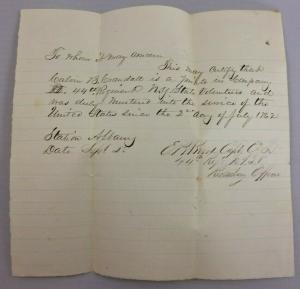 To whom I may concern
This may certify that
Calvin B. Crandall is a private in Company
44th Regiment N.Y. State Volunteers and
was duly Mustered into the service of the
United States since the 2nd day of July 1862
Station Albany
Date Sept 2
Capt Co
44th Reg N.Y.S.V.
Recruiting Officer